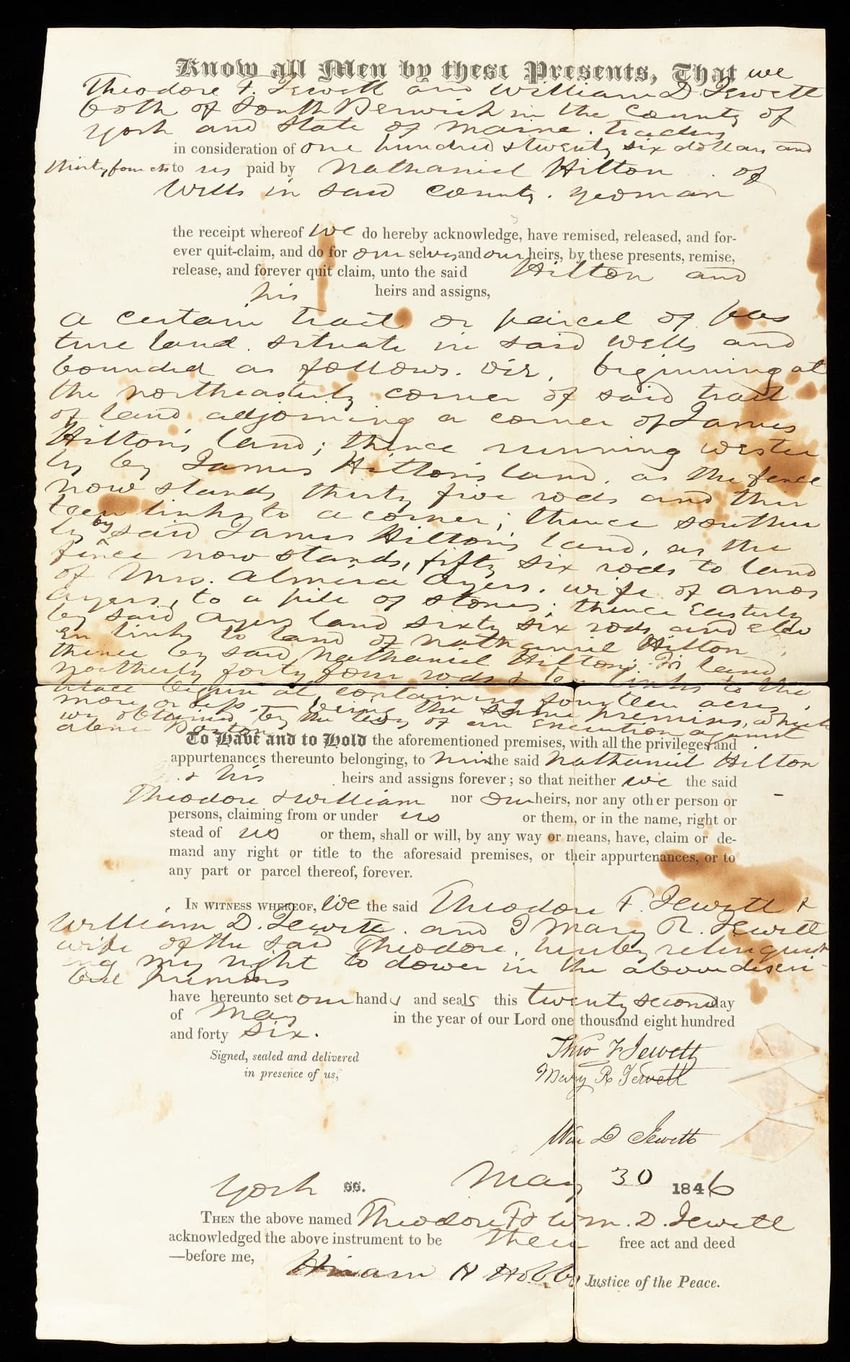 Know all Men by these Presents, That we
Theodore F. Jewett and William D Jewett
both of South Berwick in the County of
York and State of Maine. Traders
in consideration of one hundred & twenty six dollars and
thirty four cts to us paid by Nathaniel Hilton of
Wells in said County. yeoman
the receipt whereof we do hereby acknowledge, have remised, released, and for-
ever quit-claim, and do for our selves and our heirs, by these presents, remise,
release, and forever quit claim, unto the said Hilton and
his heirs and assigns,
a certain tract or parcel of pas
ture land. situate in said Wells and
bounded as follows. viz. beginning at
the northeasterly corner of said tract
of land adjoining a corner of James
Hilton's land; thence running wester
ly by James Hilton's land, as the fence
now stands thirty five rods and thir
teen links to a corner; thence souther
ly by said James Hilton's land, as the
fence now stands, fifty six rods to land
of Mrs. Almira Ayers. wife of Amos
Ayers, to a pile of stones; thence Easterly
by said Ayers land sixty six rods and elev
en links to land of Nathaniel Hilton
thence by said Nathaniel Hilton's land
northerly forty four rods & links to the
place begun at, containing fourteen acres,
more or less. being the same premises, which
we obtained by the levy of an Execution against
To Have and to Hold the aforementioned premises, with all the privileges and
appurtenances thereunto belonging, to him the said Nathaniel Hilton
& his heirs and assigns forever; so that neither we the said
Theodore & William nor our heirs, nor any other person or
persons, claiming from or under us or them, or in the name, right or
stead of us or them, shall or will, by any way or means, have, claim or de-
mand any right or title to the aforesaid premises, or their appurtenances, or to
any part or parcel thereof, forever.
In witness whereof, we the said Theodore F. Jewett &
William D. Jewett. and I Mary R. Jewett
wife of the said Theodore, hereby relinquish
ing my right to dower in the above descri-
bed premises
have hereunto set our hands and seals this twenty second day
of May in the year of our Lord one thousand eight hundred
and forty six.
Signed, sealed and delivered
in presence of us,
Theo F Jewett
Mary R Jewett
Wm D Jewett
York ss. May 30 1846
Then the above named Theodore F & Wm. D. Jewett
acknowledged the above instrument to be their free act and deed
—before me,
Hiram H Hobbs Justice of the Peace.